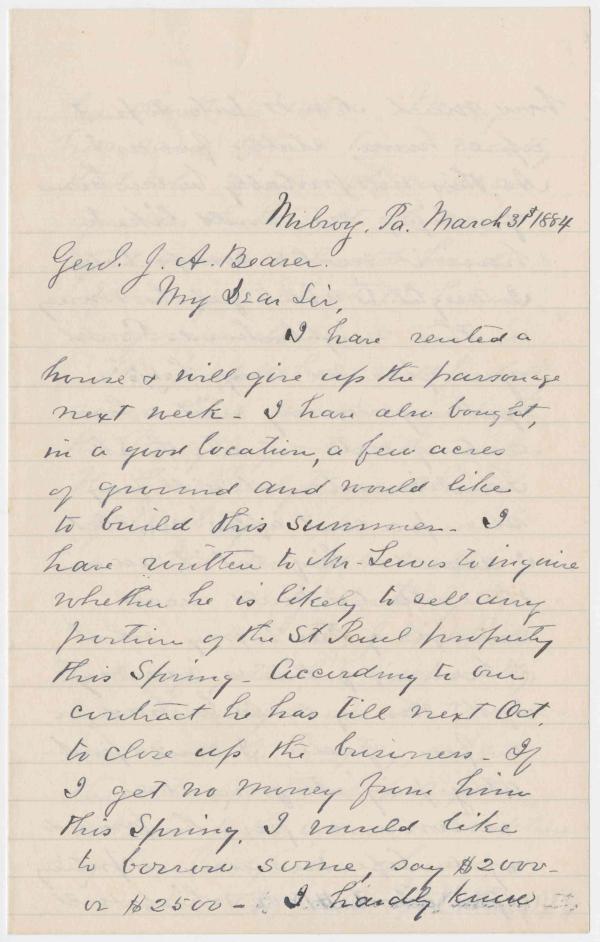 Milroy, Pa. March 31st 1884
Genl. J. A. Beaver.
My Dear Sir,
I have rented a
house & will give up the parsonage
next week - I have also bought,
in a good location, a few acres
of ground and would like
to build this summer - I
have written to Mr. Lewis to inquire
whether he is likely to sell any
portion of the St Paul property
this Spring - According to our
contract he has till next Oct.
to close up the business - If
I get no money from him
this Spring, I would like
to borrow some, say $2000 -
or $2500 - I hardly know